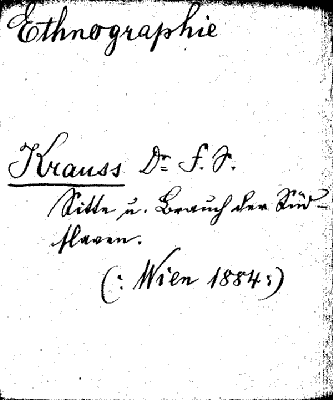 Ethnographie
Krauss Dr. F. S.
Sitte u. Brauch der Süd-
slaven.
(: Wien 1884 :)